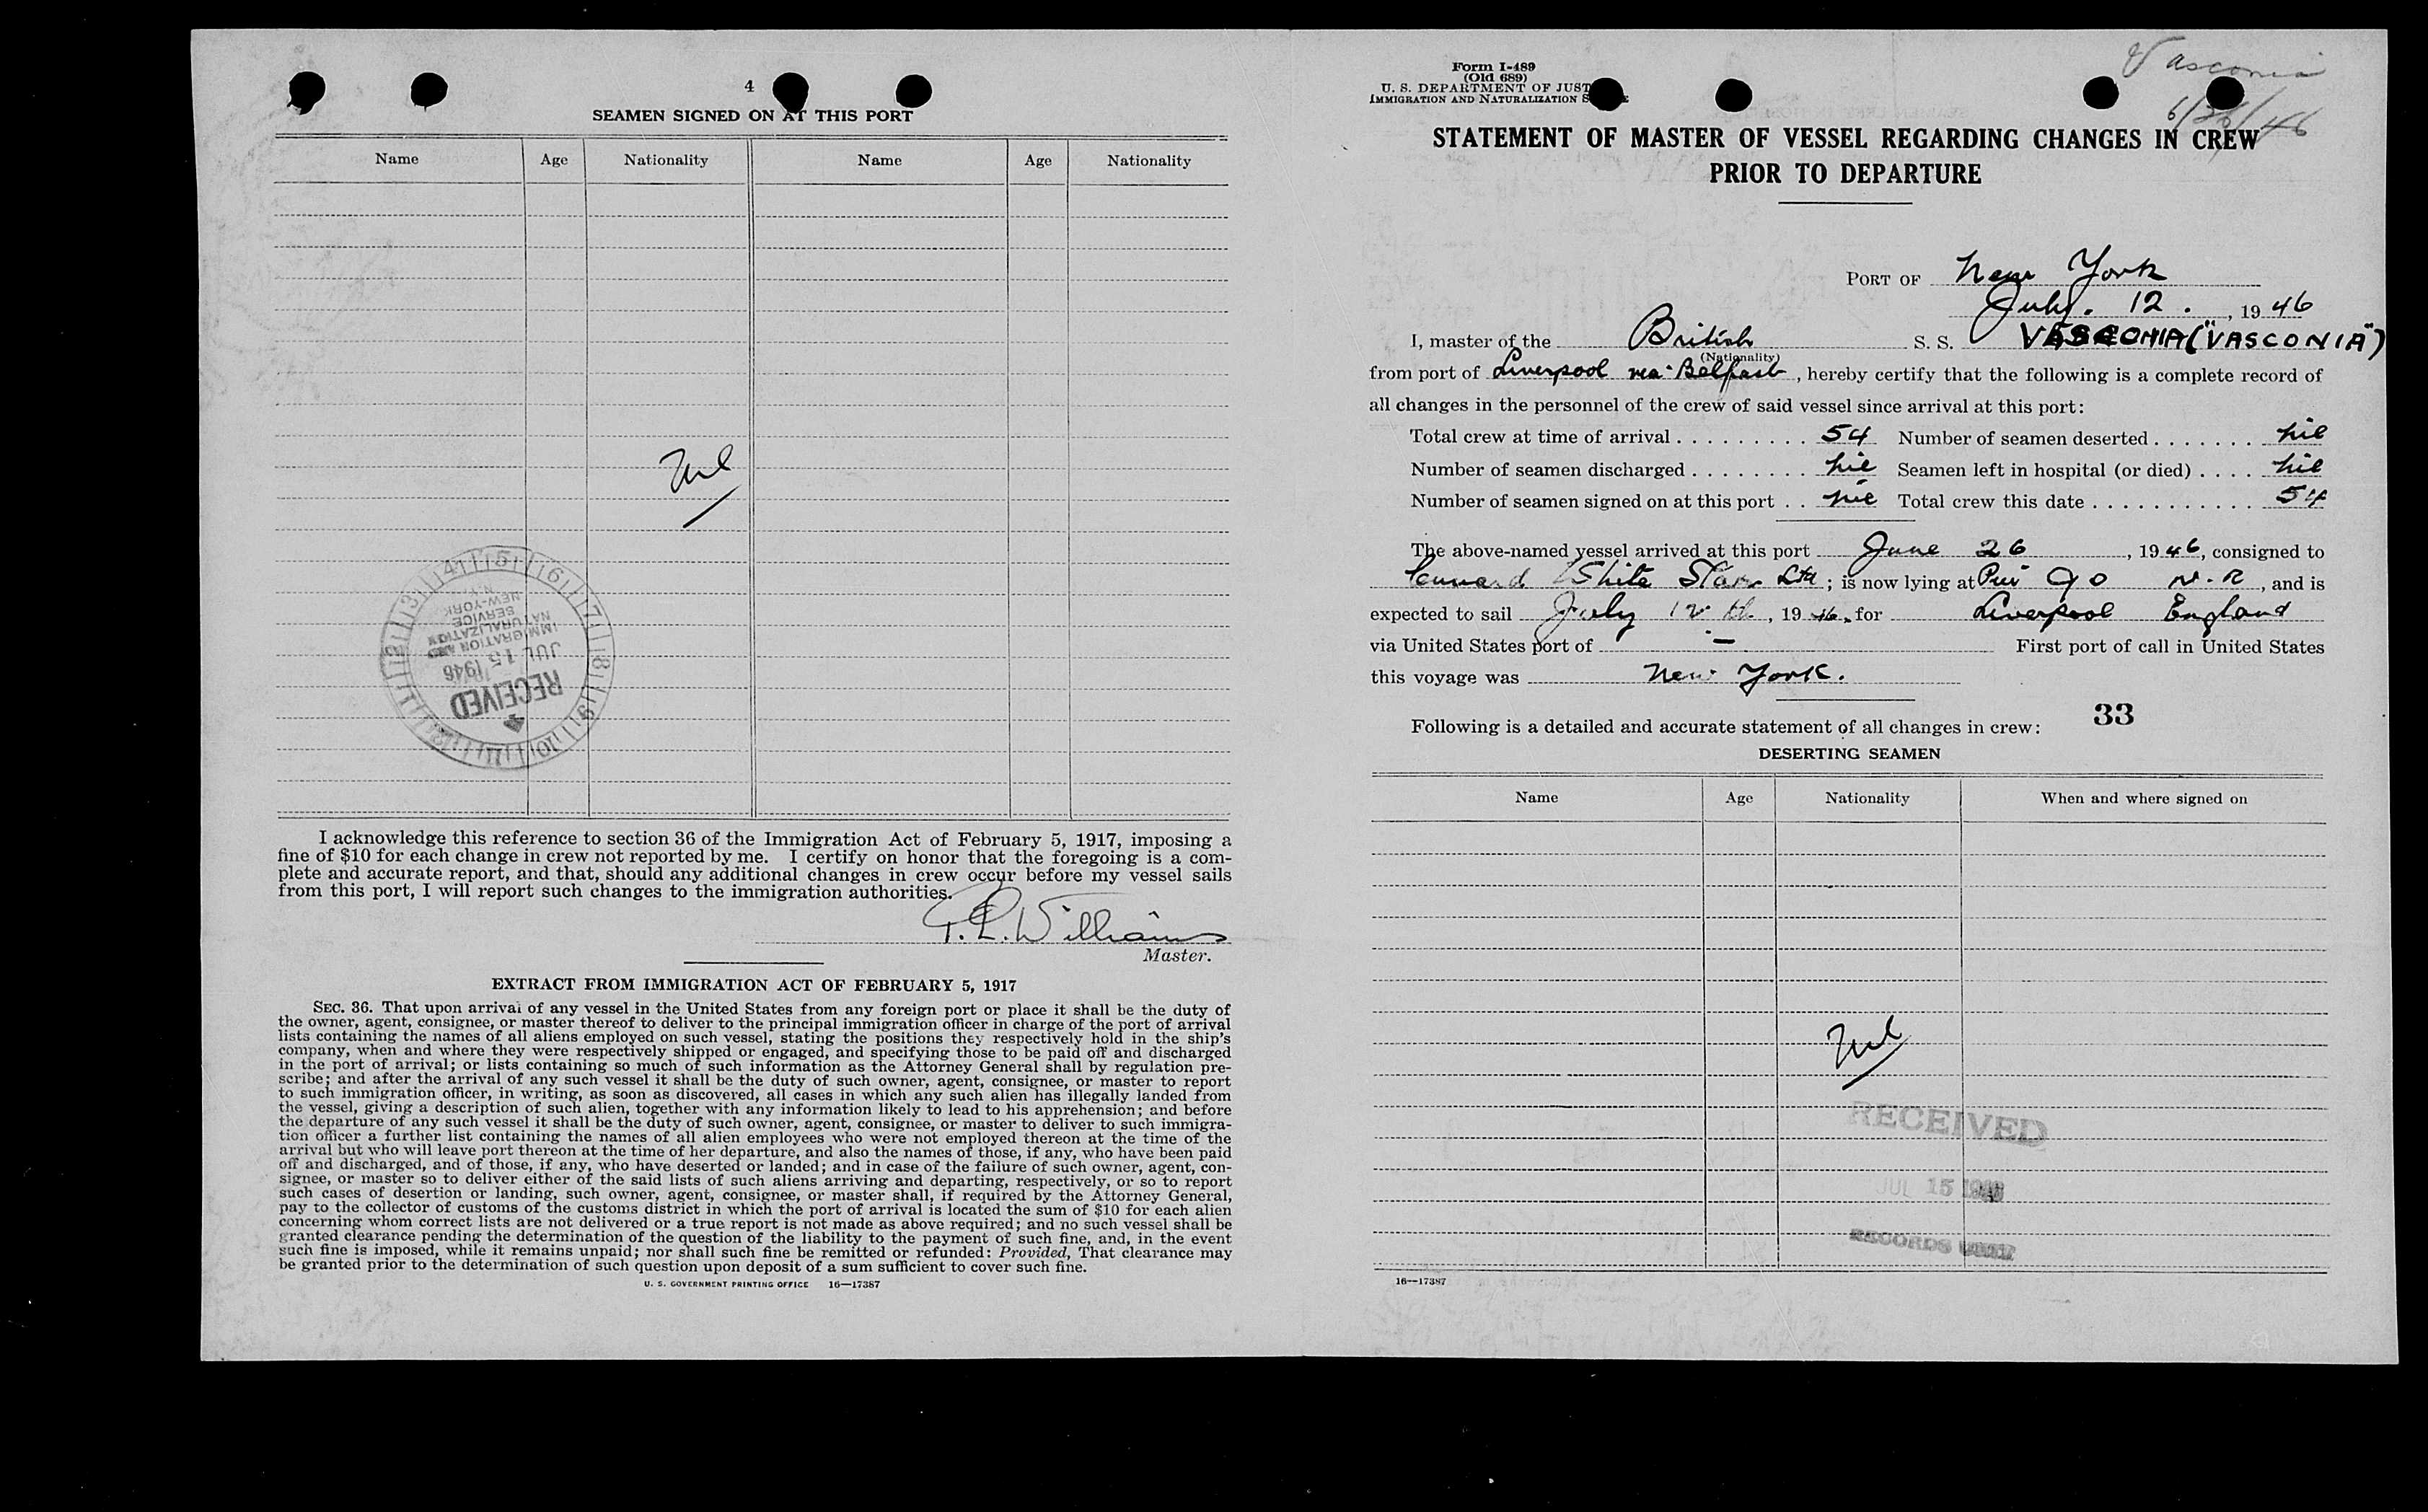 4
SEAMEN SIGNED ON AT THIS PORT
Name Age Nationality Name Age Nationality
Nil
RECEIVED
JUL 15 1946
IMMIGRATION AND
NATURALIZATION
SERVICE
NEW-YORK
N.Y.
I acknowledge this reference to section 36 of the Immigration Act of February 5, 1917, imposing a
fine of $10 for each change in crew not reported by me. I certify on honor that the foregoing is a com-
plete and accurate report, and that, should any additional changes in crew occur before my vessel sails
from this port, I will report such changes to the immigration authorities.
Williams
Master.
EXTRACT FROM IMMIGRATION ACT OF FEBRUARY 5, 1917
SEC. 36. That upon arrival of any vessel in the United States from any foreign port or place it shall be the duty of
the owner, agent, consignee, or master thereof to deliver to the principal immigration officer in charge of the port of arrival
lists containing the names of all aliens employed on such vessel, stating the positions they respectively hold in the ship's
company, when and where they were respectively shipped or engaged, and specifying those to be paid off and discharged
in the port of arrival; or lists containing so much of such information as the Attorney General shall by regulation pre-
scribe; and after the arrival of any such vessel it shall be the duty of such owner, agent, consignee, or master to report
to such immigration officer, in writing, as soon as discovered, all cases in which any such alien has illegally landed from
the vessel, giving a description of such alien, together with any information likely to lead to his apprehension; and before
the departure of any such vessel it shall be the duty of such owner, agent, consignee, or master to deliver to such immigra-
tion officer a further list containing the names of all alien employees who were not employed thereon at the time of the
arrival but who will leave port thereon at the time of her departure, and also the names of those, if any, who have been paid
off and discharged, and of those, if any, who have deserted or landed; and in case of the failure of such owner, agent, con-
signee, or master so to deliver either of the said lists of such aliens arriving and departing, respectively, or so to report
such cases of desertion or landing, such owner, agent, consignee, or master shall, if required by the Attorney General,
pay to the collector of customs of the customs district in which the port of arrival is located the sum of $10 for each alien
concerning whom correct lists are not delivered or a true report is not made as above required; and no such vessel shall be
granted clearance pending the determination of the question of the liability to the payment of such fine, and, in the event
such fine is imposed, while it remains unpaid; nor shall such fine be remitted or refunded: Provided, That clearance may
be granted prior to the determination of such question upon deposit of a sum sufficient to cover such fine.
U. S. GOVERNMENT PRINTING OFFICE 16—17387
Vasconia
6/26/46
Form I-489
(Old 689)
U. S. DEPARTMENT OF JUST
IMMIGRATION AND NATURALIZATION S
STATEMENT OF MASTER OF VESSEL REGARDING CHANGES IN CREW
PRIOR TO DEPARTURE
PORT OF New York
July. 12. , 19 46
I, master of the British S. S. ("VASCONIA")
(Nationality)
from port of Liverpool via Belfast, hereby certify that the following is a complete record of
all changes in the personnel of the crew of said vessel since arrival at this port:
Total crew at time of arrival . . . . . . . . . 54 Number of seamen deserted . . . . . . . nil
Number of seamen discharged . . . . . . . . nil Seamen left in hospital (or died) . . . . nil
Number of seamen signed on at this port . . nil Total crew this date . . . . . . . . . . . 54
The above-named vessel arrived at this port June 26, 1946, consigned to
Cunard White Star Ltd; is now lying at Pier 90 N.R, and is
expected to sail July 12th, 1946, for Liverpool England
via United States port of — First port of call in United States
this voyage was New York.
Following is a detailed and accurate statement of all changes in crew: 33
DESERTING SEAMEN
Name Age Nationality When and where signed on
Nil
RECEIVED
JUL 15 1946
RECORDS UNIT
16—17387